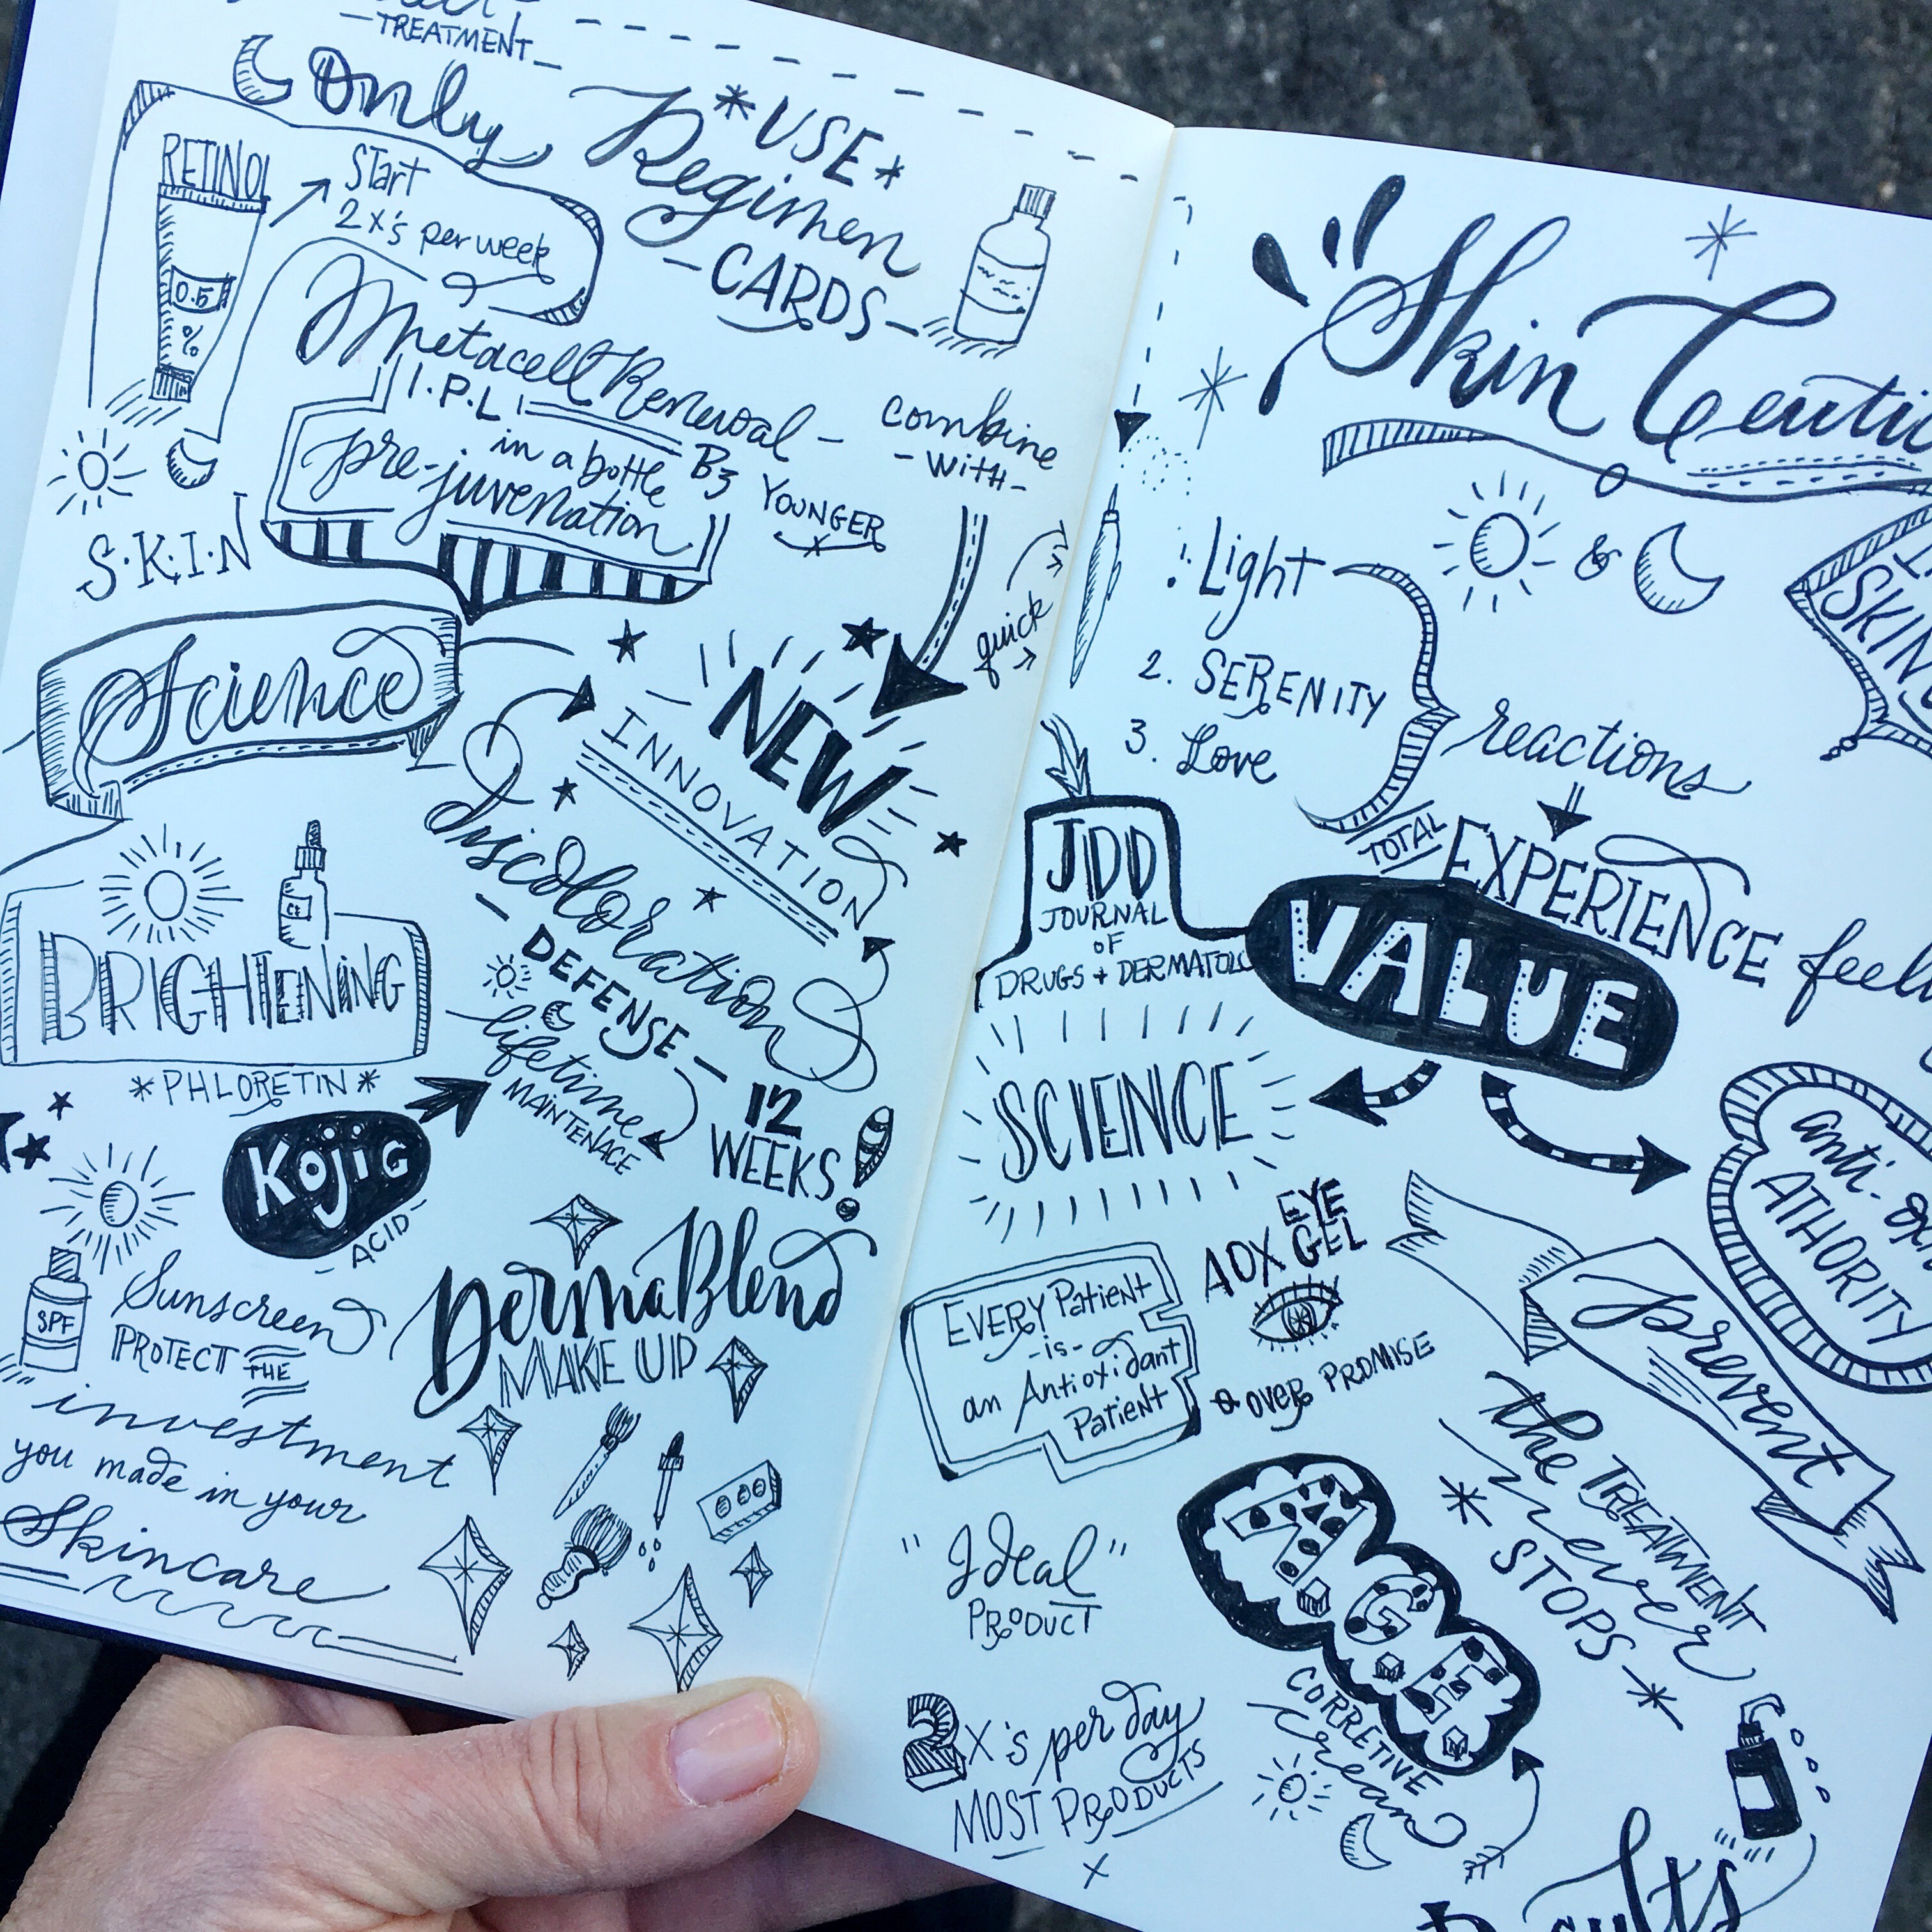 TREATMENT
Only
RETINOL
Start
2x's per week
0.5
%
*USE*
Regimen
CARDS
Metacell Renewal
I.P.L!
in a bottle
pre-juvenation
B3
YOUNGER
combine
-with-
quick
S.K.I.N
Science
NEW
INNOVATION
Discoloration
DEFENSE
lifetime
MAINTENACE
12
WEEKS!
BRIGHTENING
*PHLORETIN*
Kojic
-ACID-
SPF
Sunscreen
PROTECT THE
investment
you made in your
Skincare
DermaBlend
MAKE UP
Skin Ceuti
&
SKIN
1. Light
2. SERENITY
3. Love
reactions
TOTAL
EXPERIENCE
VALUE
JDD
JOURNAL
OF
DRUGS + DERMATOL
SCIENCE
anti-ox
ATHORITY
EYE
AOX GEL
over PROMISE
EVERY Patient
-is-
an Antioxidant
Patient
prevent
the TREATMENT
never
* STOPS *
"Ideal"
PRODUCT
A.G.E.
CORRETIVE
cream
2x's per day
MOST PRODUCTS
x